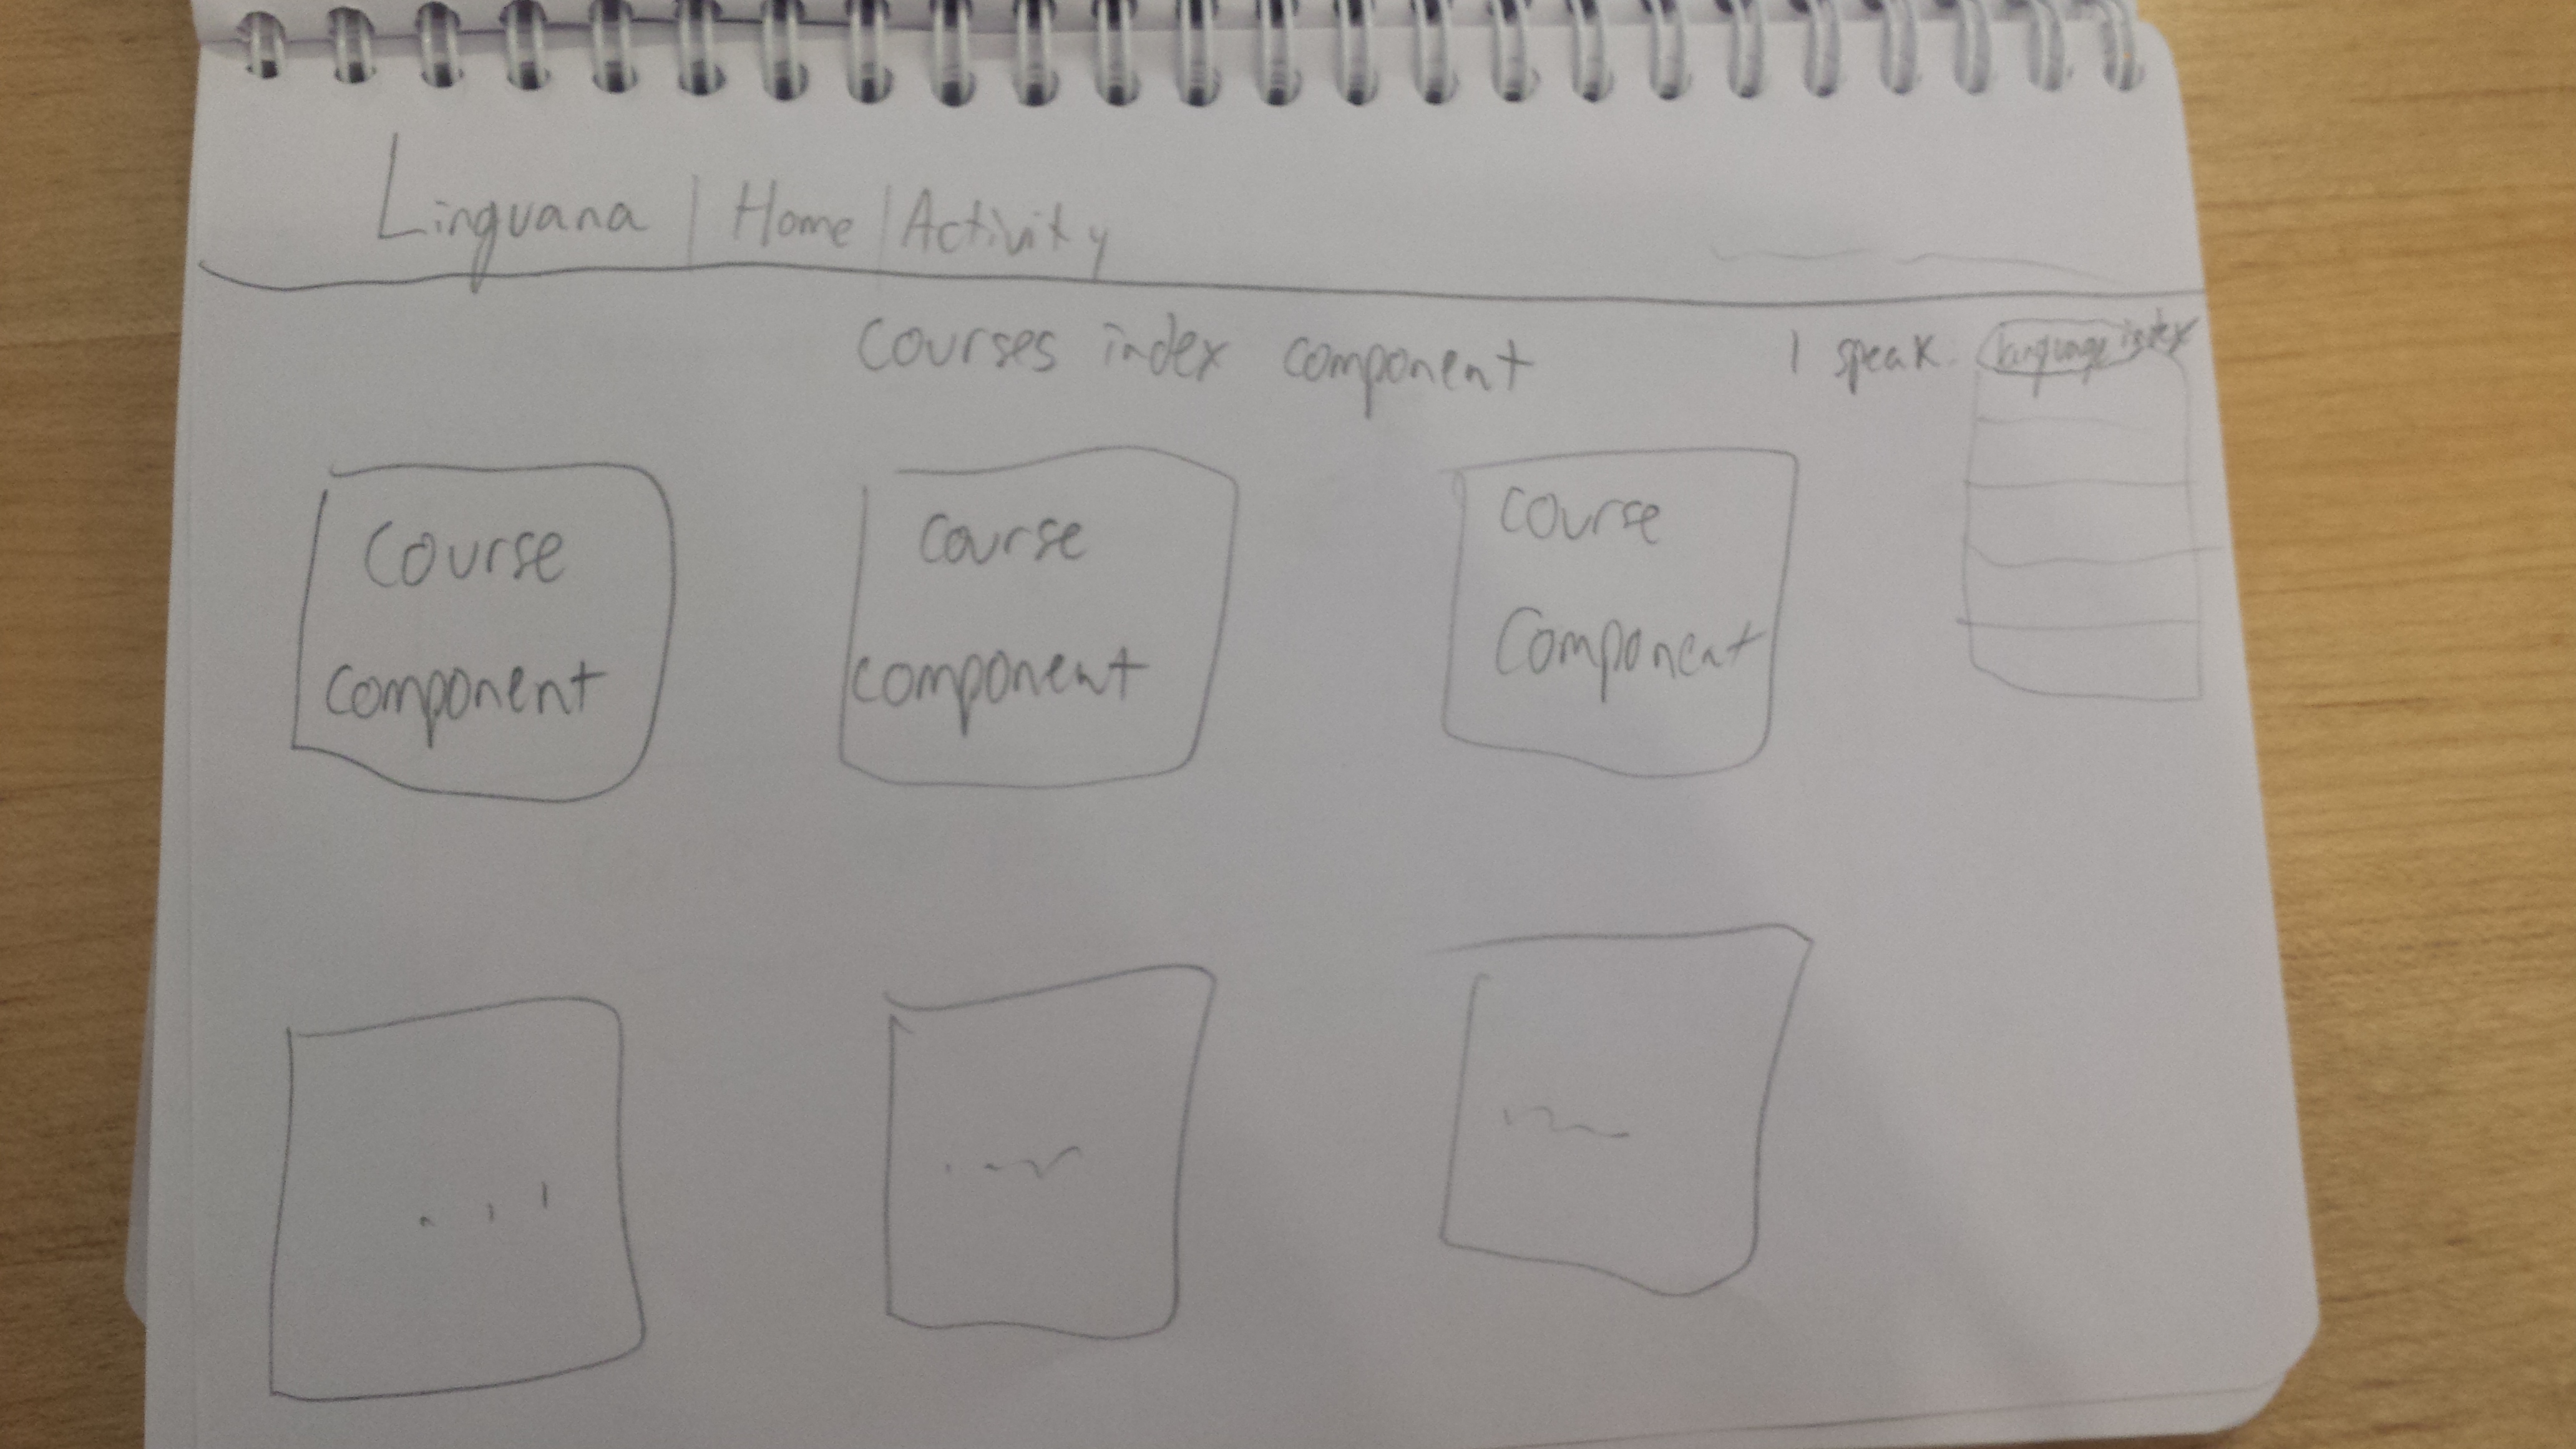 Linguana | Home | Activity
Courses index component
I speak language index
Course component
Course component
Course Component
...